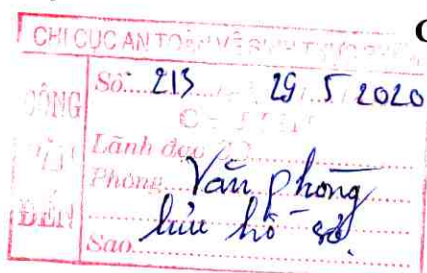 C
CHI CỤC AN TOÀN VỆ SINH THỰC PHẨM
CÔNG VĂN ĐẾN
Số: 213 29 5 2020
Lãnh đạo
Phòng Văn phòng
lưu hồ sơ
Sao